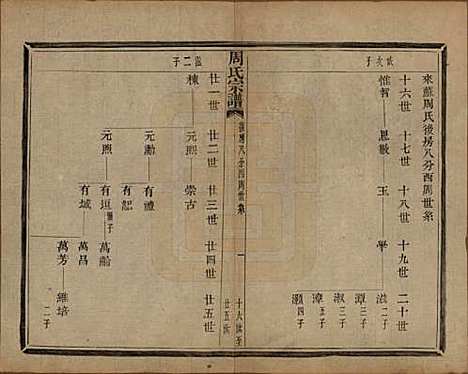 來蘇周氏後房八分西周世系
十六世 十七世 十八世 十九世 二十世
惟哲 恩敬 玉 學 滋 二子
淑 三子
潭 三子
漳 五子
灝 四子
周氏宗譜
後房八分西周世系 一 十六世至廿五世
廿一世 廿二世 廿三世 廿四世 廿五世
棟 元熙 崇古
元勳 有禮
有恕
元煕 有垣 萬齡
有城 萬昌
萬芳 維培 二子